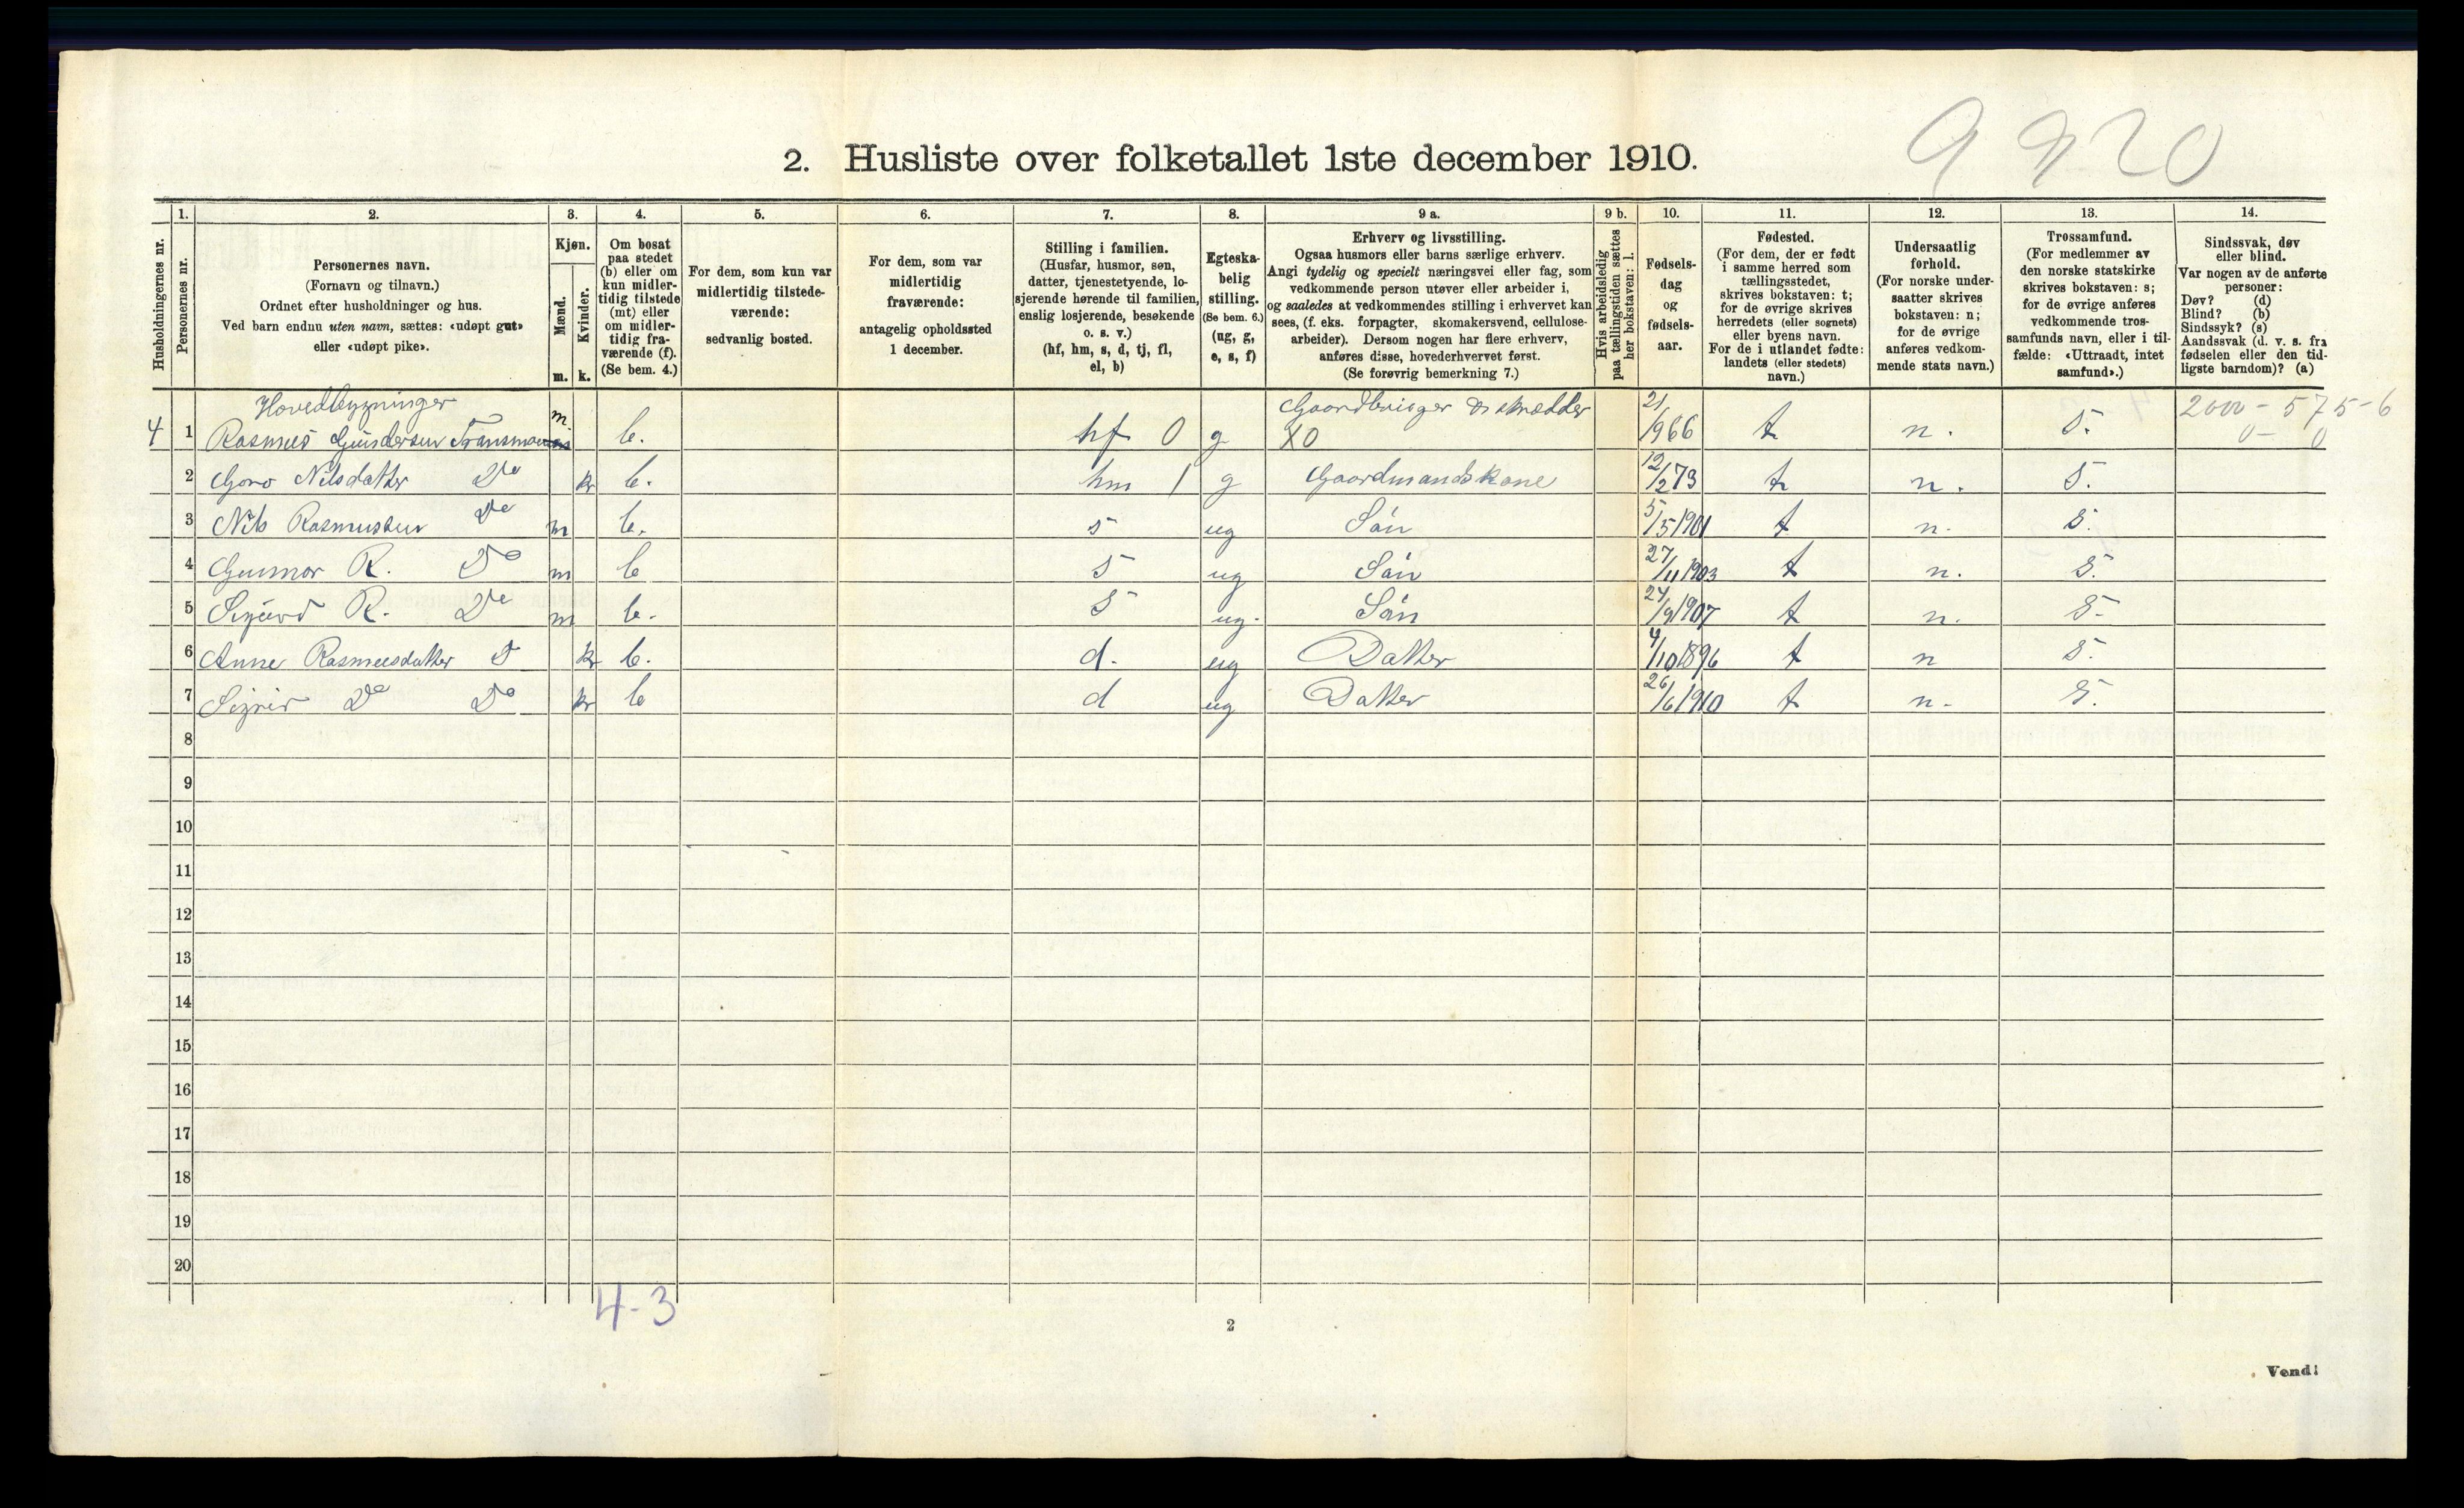 9920
2. Husliste over folketallet 1ste december 1910.
Husholdningernes nr.
1.
Personernes nr.
2.
Personernes navn.
(Fornavn og tilnavn.)
Ordnet efter husholdninger og hus.
Ved barn endnu uten navn, sættes: «udøpt gut»
eller «udøpt pike».
3.
Kjøn.
Mænd.
Kvinder.
m. k.
4.
Om bosat
paa stedet
(b) eller om
kun midler-
tidig tilstede
(mt) eller
om midler-
tidig fra-
værende (f).
(Se bem. 4.)
5.
For dem, som kun var
midlertidig tilstede-
værende:
sedvanlig bosted.
6.
For dem, som var
midlertidig
fraværende:
antagelig opholdssted
1 december.
7.
Stilling i familien.
(Husfar, husmor, søn,
datter, tjenestetyende, lo-
sjerende hørende til familien,
enslig losjerende, besøkende
o. s. v.)
(hf, hm, s, d, tj, fl,
el, b)
8.
Egteska-
belig
stilling.
(Se bem. 6.)
(ug, g,
e, s, f)
9 a.
Erhverv og livsstilling.
Ogsaa husmors eller barns særlige erhverv.
Angi tydelig og specielt næringsvei eller fag, som
vedkommende person utøver eller arbeider i,
og saaledes at vedkommendes stilling i erhvervet kan
sees, (f. eks. forpagter, skomakersvend, cellulose-
arbeider). Dersom nogen har flere erhverv,
anføres disse, hovederhvervet først.
(Se forøvrig bemerkning 7.)
9 b.
Hvis arbeidsledig
paa tællingstiden sættes
her bokstaven: l.
10.
Fødsels-
dag
og
fødsels-
aar.
11.
Fødested.
(For dem, der er født
i samme herred som
tællingsstedet,
skrives bokstaven: t;
for de øvrige skrives
herredets (eller sognets)
eller byens navn.
For de i utlandet fødte:
landets (eller stedets)
navn.)
12.
Undersaatlig
forhold.
(For norske under-
saatter skrives
bokstaven: n;
for de øvrige
anføres vedkom-
mende stats navn.)
13.
Trossamfund.
(For medlemmer av
den norske statskirke
skrives bokstaven: s;
for de øvrige anføres
vedkommende tros-
samfunds navn, eller i til-
fælde: «Uttraadt, intet
samfund».)
14.
Sindssvak, døv
eller blind.
Var nogen av de anførte
personer:
Døv? (d)
Blind? (b)
Sindssyk? (s)
Aandssvak (d. v. s. fra
fødselen eller den tid-
ligste barndom)? (a)
Hovedbygninger
Gaardbruger og skrædder 2000 - 575-6
4 1 Rasmus Gundersen m b. hf 0 g X0 21/1966 t n. S. 0- 0
2 Goro Nilsdatter Do k b. hm 1 g Gaardmandskone 12/2 73 t n. S.
3 Nils Rasmussen Do m b. s ug Sön 5/5 1901 t n. S.
4 Gunnar R. Do m b s ug Sön 27/11 1903 t n. S.
5 Sigurd R. Do m b. s ug. Sön 24/9 1907 t n. S.
6 Anne Rasmusdatter D k b. d. ug Datter 4/10 1896 t n S.
7 Sigrid Do Do k b d ug Datter 26/6 1910 t n. S.
8
9
10
11
12
13
14
15
16
17
18
19
20
4-3
2
Vend!